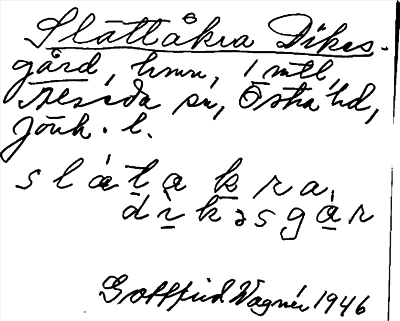 Slättåkra Dikes-
gård, hmn, 1 mtl,
Alseda sn, Östra hd,
Jönk. l.
slátakra,
dìkəsgàr
Gottfrid Wagnér 1946